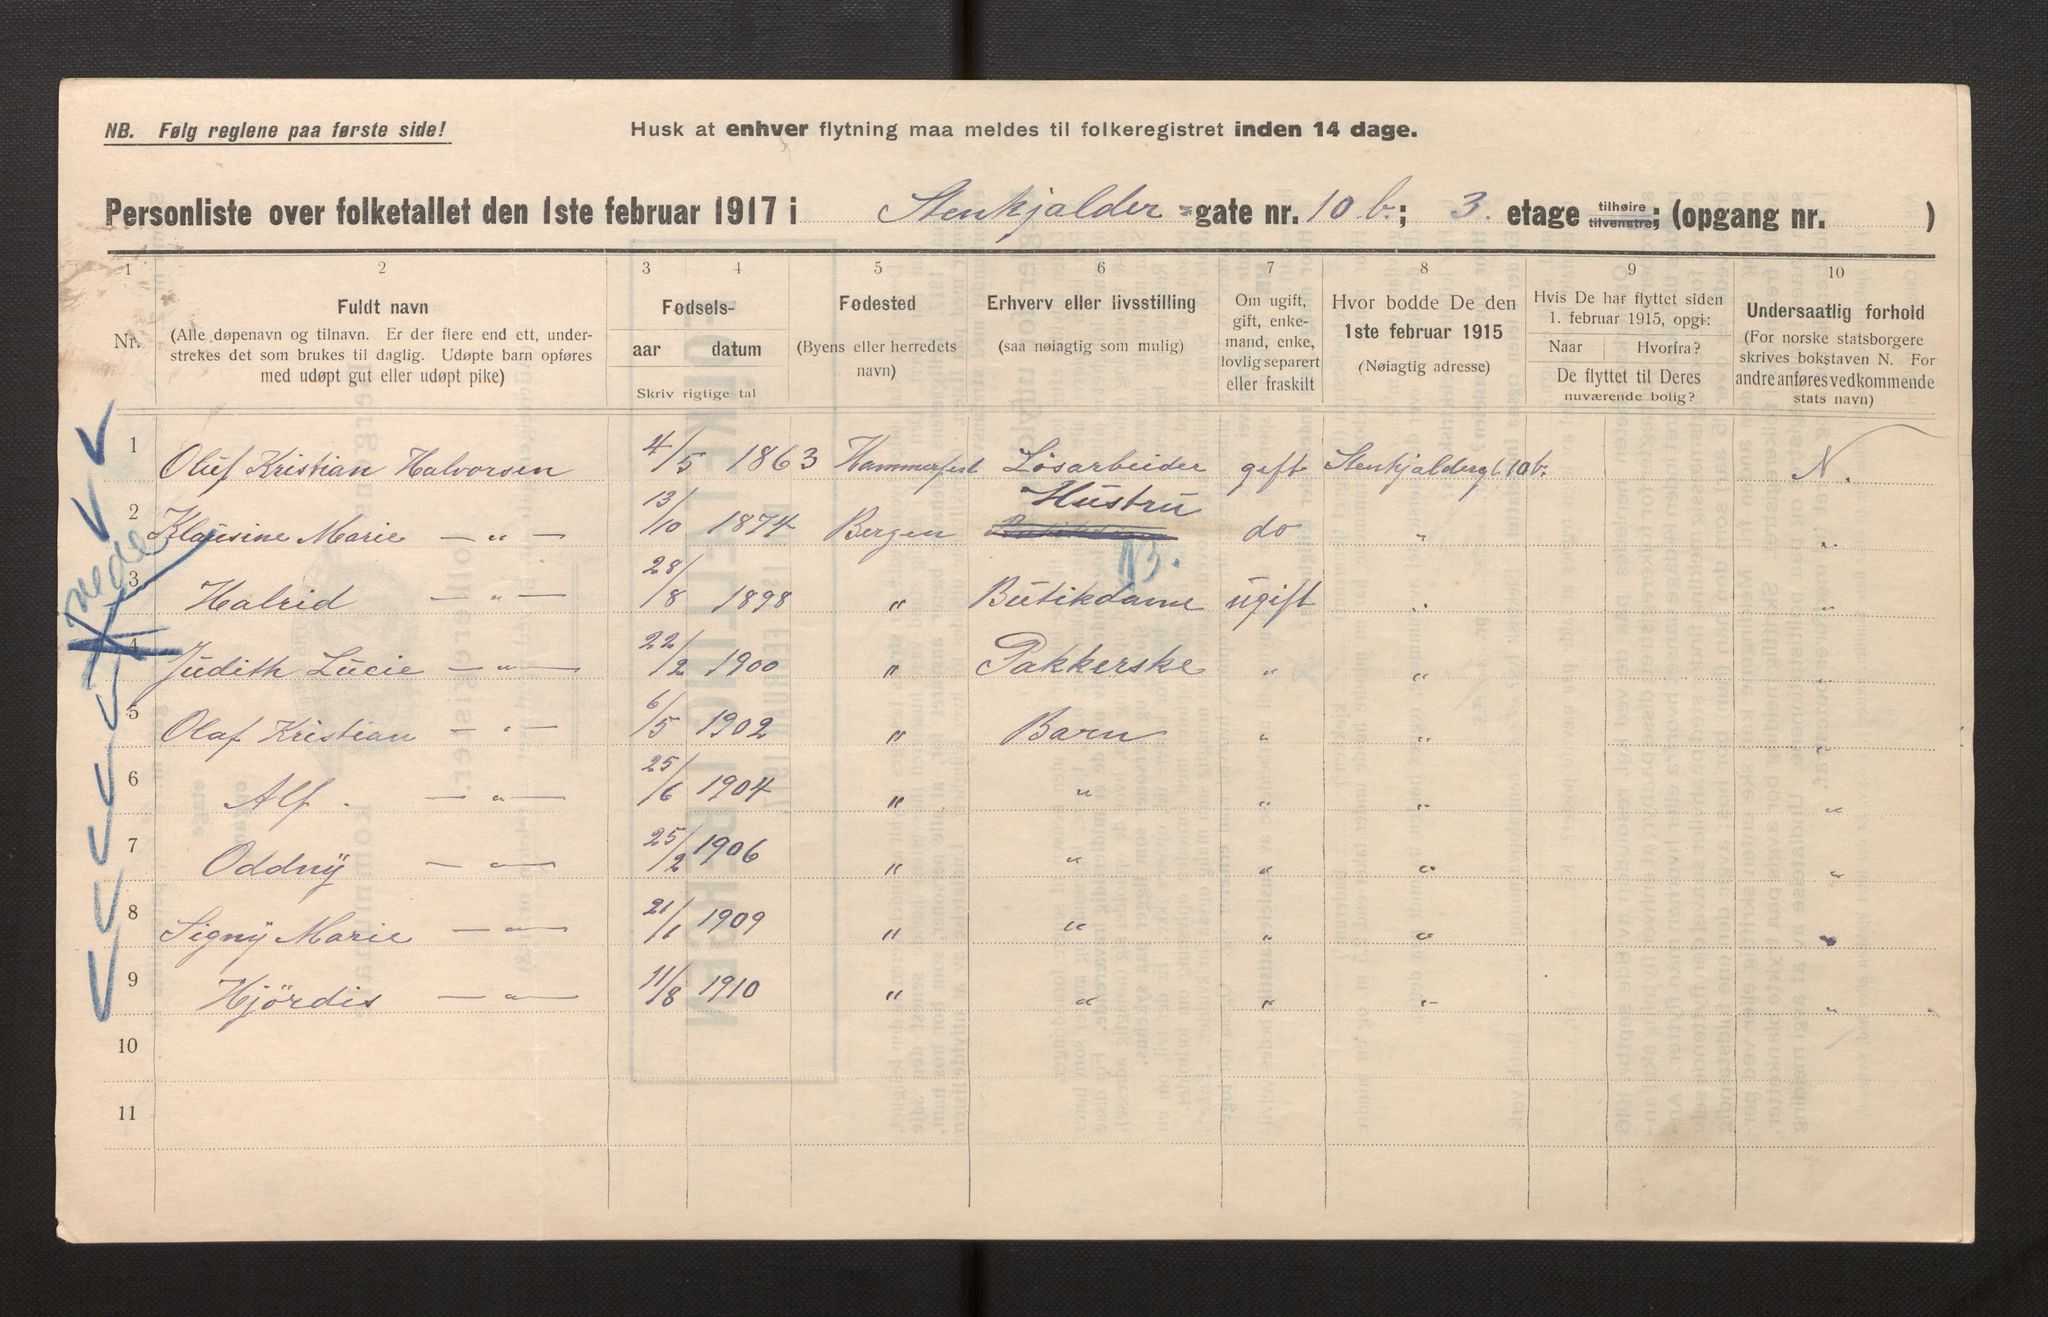 NB. Følg reglene paa første side!
Husk at enhver flytning maa meldes til folkeregistret inden 14 dage.
Personliste over folketallet den 1ste februar 1917 i Stenkjalder =gate nr. 10 b.; 3. etage tilhøire tilvenstre; (opgang nr. )
1 2 3 4 5 6 7 8 9 10
Nr.
Fuldt navn
(Alle døpenavn og tilnavn. Er der flere end ett, under-
strekes det som brukes til daglig. Udøpte barn opføres
med udøpt gut eller udøpt pike)
Fødsels-
aar datum
Skriv rigtige tal
Fødested
(Byens eller herredets
navn)
Erhverv eller livsstilling
(saa nøiagtig som mulig)
Om ugift,
gift, enke-
mand, enke,
lovlig separert
eller fraskilt
Hvor bodde De den
1ste februar 1915
(Nøiagtig adresse)
Hvis De har flyttet siden
1. februar 1915, opgi:
Naar Hvorfra?
De flyttet til Deres
nuværende bolig?
Undersaatlig forhold
(For norske statsborgere
skrives bokstaven N. For
andre anføres vedkommende
stats navn)
1 Oluf Kristian Halvorsen 4/5 1863 Hammerfest Løsarbeider gift Stenkjalderg 10b. N.
Hustru
2 Klausine Marie — „ — 13/10 1874 Bergen do „ „
nede
N3.
3 Halrid — „ — 28/8 1898 „ Butikdame ugift „ „
4 Judith Lucie — „ — 22/2 1900 „ Pakkerske „ „ „
5 Olaf Kristian — „ — 6/5 1902 „ Barn „ „ „
6 Alf — „ — 25/6 1904 „ „ „ „ „
7 Oddny — „ — 25/2 1906 „ „ „ „ „
8 Signy Marie — „ — 21/1 1909 „ „ „ „ „
9 Hjördis — „ — 11/8 1910 „ „ „ „ „
10
11